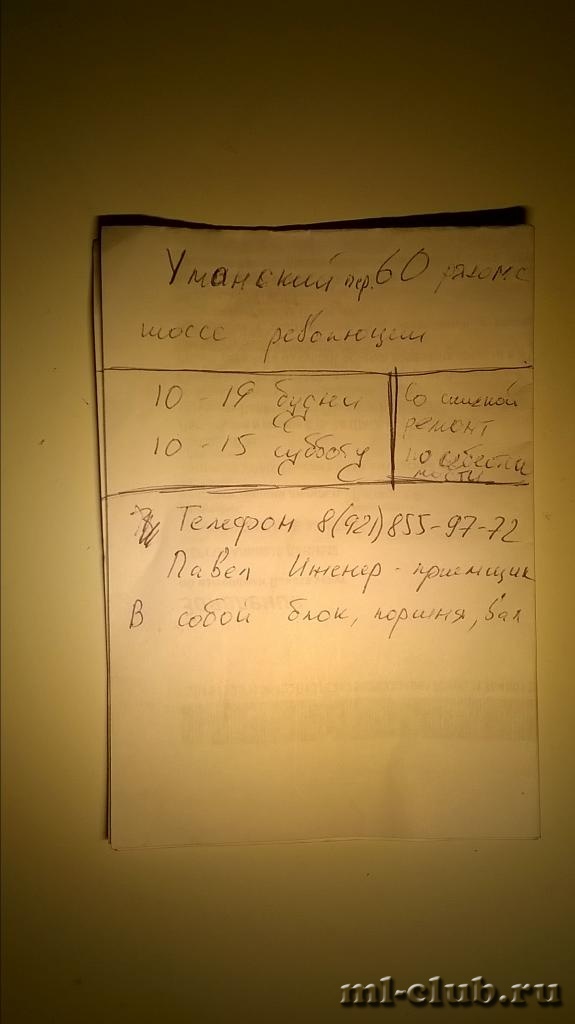 Уманский пер. 60 рядом с
шоссе революции
10 - 19 будни
10 - 15 субботу
Со скидкой
ремонт
по себестои
мости
Телефон 8(921)855-97-72
Павел Инженер - приемщик
В собой блок, поршня, вал
ml-club.ru